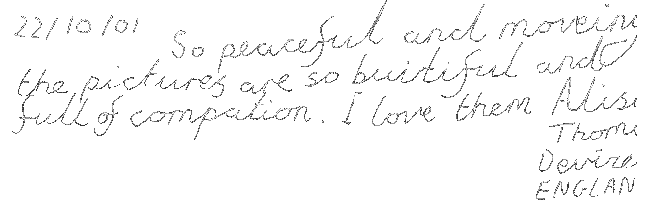 22/10/01 So peaceful and movein
the pictures are so buitiful and
full of compation. I love them Alis
Thom
Devize
ENGLAN